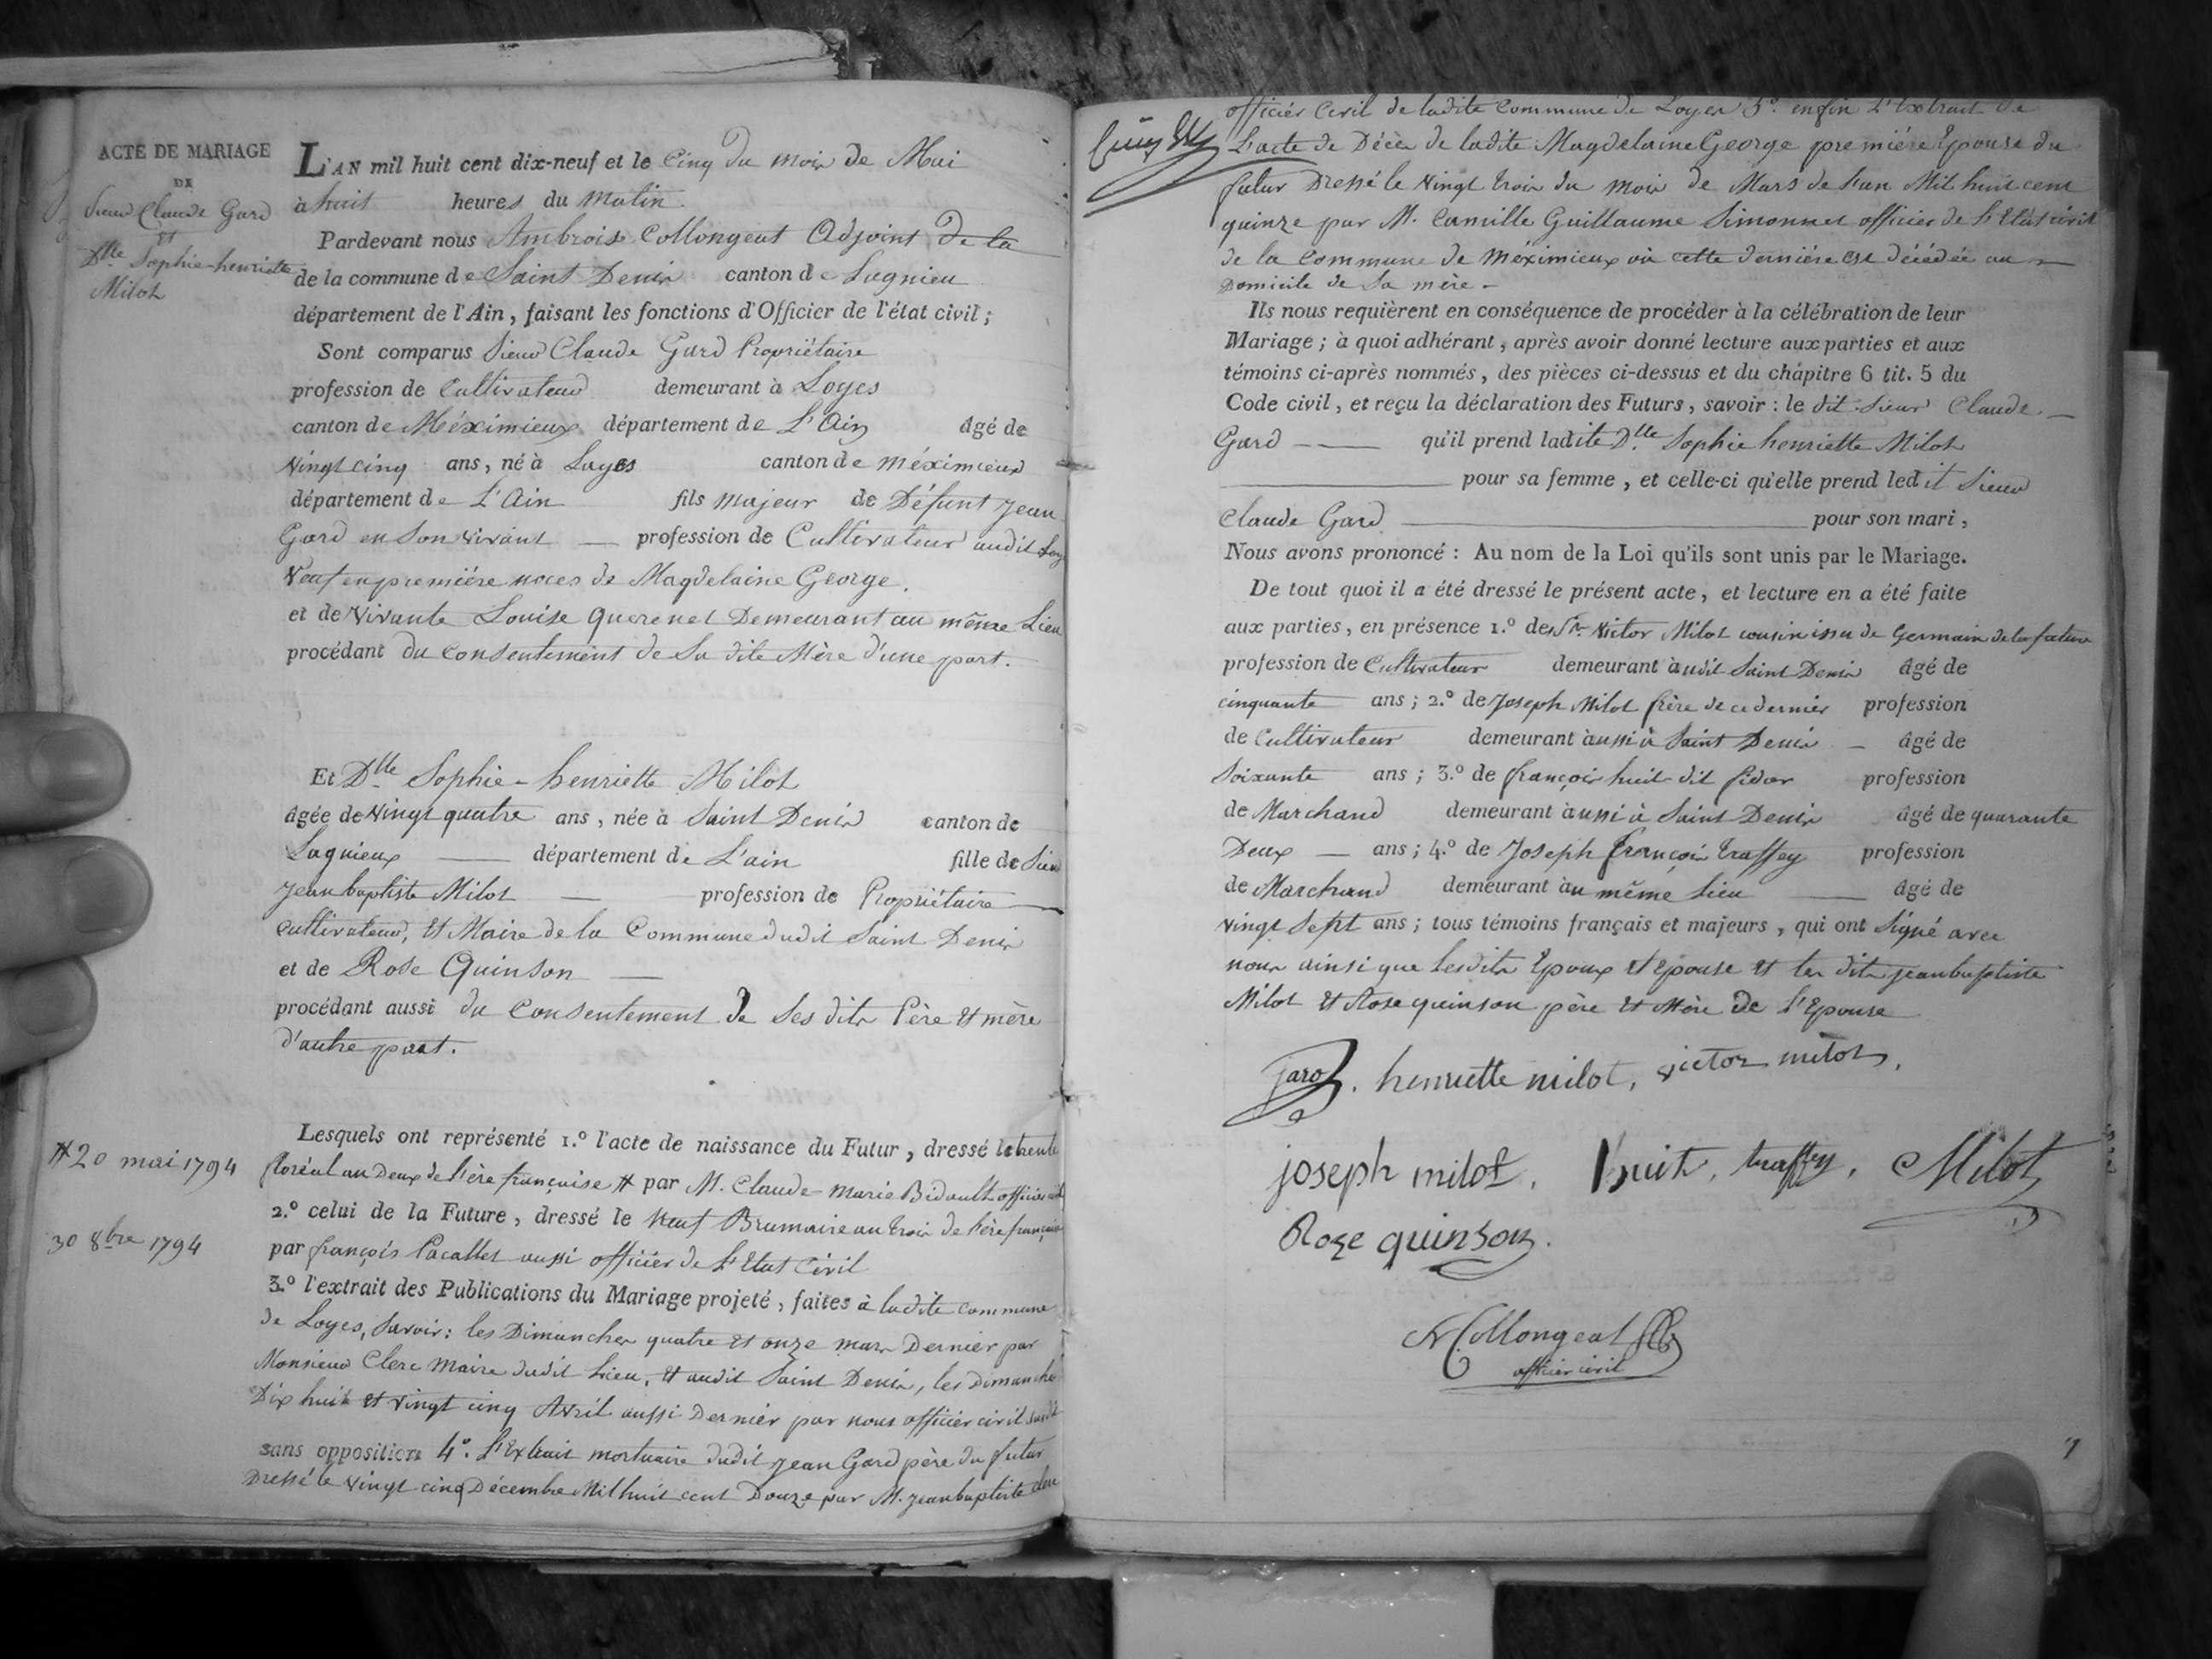 ACTE DE MARIAGE
DE
Sieur Claude Gard
et
Dlle Sophie-henriette
Milot
L'AN mil huit cent dix-neuf et le Cinq du mois de Mai
à huit heures du Matin.
Pardevant nous Ambroise Collongeat Adjoint de la
de la commune de Saint Denis canton de Lagnieu
département de l'Ain, faisant les fonctions d'Officier de l'état civil;
Sont comparus Sieur Claude Gard Propriétaire
profession de Cultivateur demeurant à Loyes
canton de Méximieux département de L'Ain âgé de
Vingt cinq ans, né à Loyes canton de méximieux
département de L'Ain fils majeur de Défunt Jean
Gard en Son vivant — profession de Cultivateur audit Loy
Veuf en première noces de Magdelaine George.
et de Vivante Louise Querenet Demeurant au même Lieu
procédant du Consentement de Sa dite Mère d'une part.
Et Dlle Sophie-henriette Milot
âgée de Vingt quatre ans, née à Saint Denis canton de
Lagnieux — département de L'ain fille de Sieur
Jean baptiste Milot — profession de Propriétaire
Cultivateur, Et Maire de la Commune dudit Saint Denis
et de Rose Quinson —
procédant aussi du Consentement de Ses dits Père Et mère
d'autre part.
Lesquels ont représenté 1.º l'acte de naissance du Futur, dressé le trente
# 20 mai 1794
floréal an Deux de l'ère française # par M. Claude Marie Bidault officier civil
2.º celui de la Future, dressé le Neuf Brumaire an trois de l'ère française
30 8bre 1794
par françois Pacallet aussi officier de L'Etat Civil
3.º l'extrait des Publications du Mariage projeté, faites à ladite commune
de Loyes, Savoir: les Dimanches quatre et onze mars Dernier par
Monsieur Clerc Maire dudit Lieu, Et audit Saint Denis, les dimanches
Dix huit et vingt cinq Avril aussi Dernier par nous officier civil susdit
sans opposition 4º. L'Extrait mortuaire dudit Jean Gard père du futur
Dressé le Vingt cinq Décembre Mil huit cent Douze par M. Jean baptiste clerc
officier Civil de ladite Commune de Loyes 5º. enfin L'Extrait de
L'acte de Décès de ladite Magdelaine George première Epouse du
futur Dressé le Vingt trois du mois de Mars de L'an Mil huit cent
quinze par M. Camille Guillaume Simonnet officier de L'Etat civil
de la Commune de Méximieux où cette dernière est décédée au
Domicile de Sa mère -
Ils nous requièrent en conséquence de procéder à la célébration de leur
Mariage; à quoi adhérant, après avoir donné lecture aux parties et aux
témoins ci-après nommés, des pièces ci-dessus et du chapitre 6 tit. 5 du
Code civil, et reçu la déclaration des Futurs, savoir: le dit Sieur Claude —
Gard — qu'il prend ladite Dlle Sophie henriette Milot
— pour sa femme, et celle-ci qu'elle prend ledit Sieur
Claude Gard — pour son mari,
Nous avons prononcé: Au nom de la Loi qu'ils sont unis par le Mariage.
De tout quoi il a été dressé le présent acte, et lecture en a été faite
aux parties, en présence 1.º de Sr. Victor Milot cousin issu de Germain de la future
profession de Cultivateur demeurant audit Saint Denis âgé de
cinquante ans; 2.º de Joseph Milot frère de ce dernier profession
de Cultivateur demeurant aussi à Saint Denis — âgé de
Soixante ans; 3.º de françois huit dit profession
de Marchand demeurant aussi à Saint Denis âgé de quarante
Deux — ans; 4.º de Joseph françois traffey profession
de Marchand demeurant au même Lieu — âgé de
vingt Sept ans; tous témoins français et majeurs, qui ont Signé avec
nous ainsi que Lesdits Epoux Et Epouse Et les dits Jean baptiste
Milot Et Rose quinson père Et Mère de L'Epouse
henriette milot, victor milot,
joseph milot, huit, traffey, Milot
Roze quinson.
Collongeat
officier civil